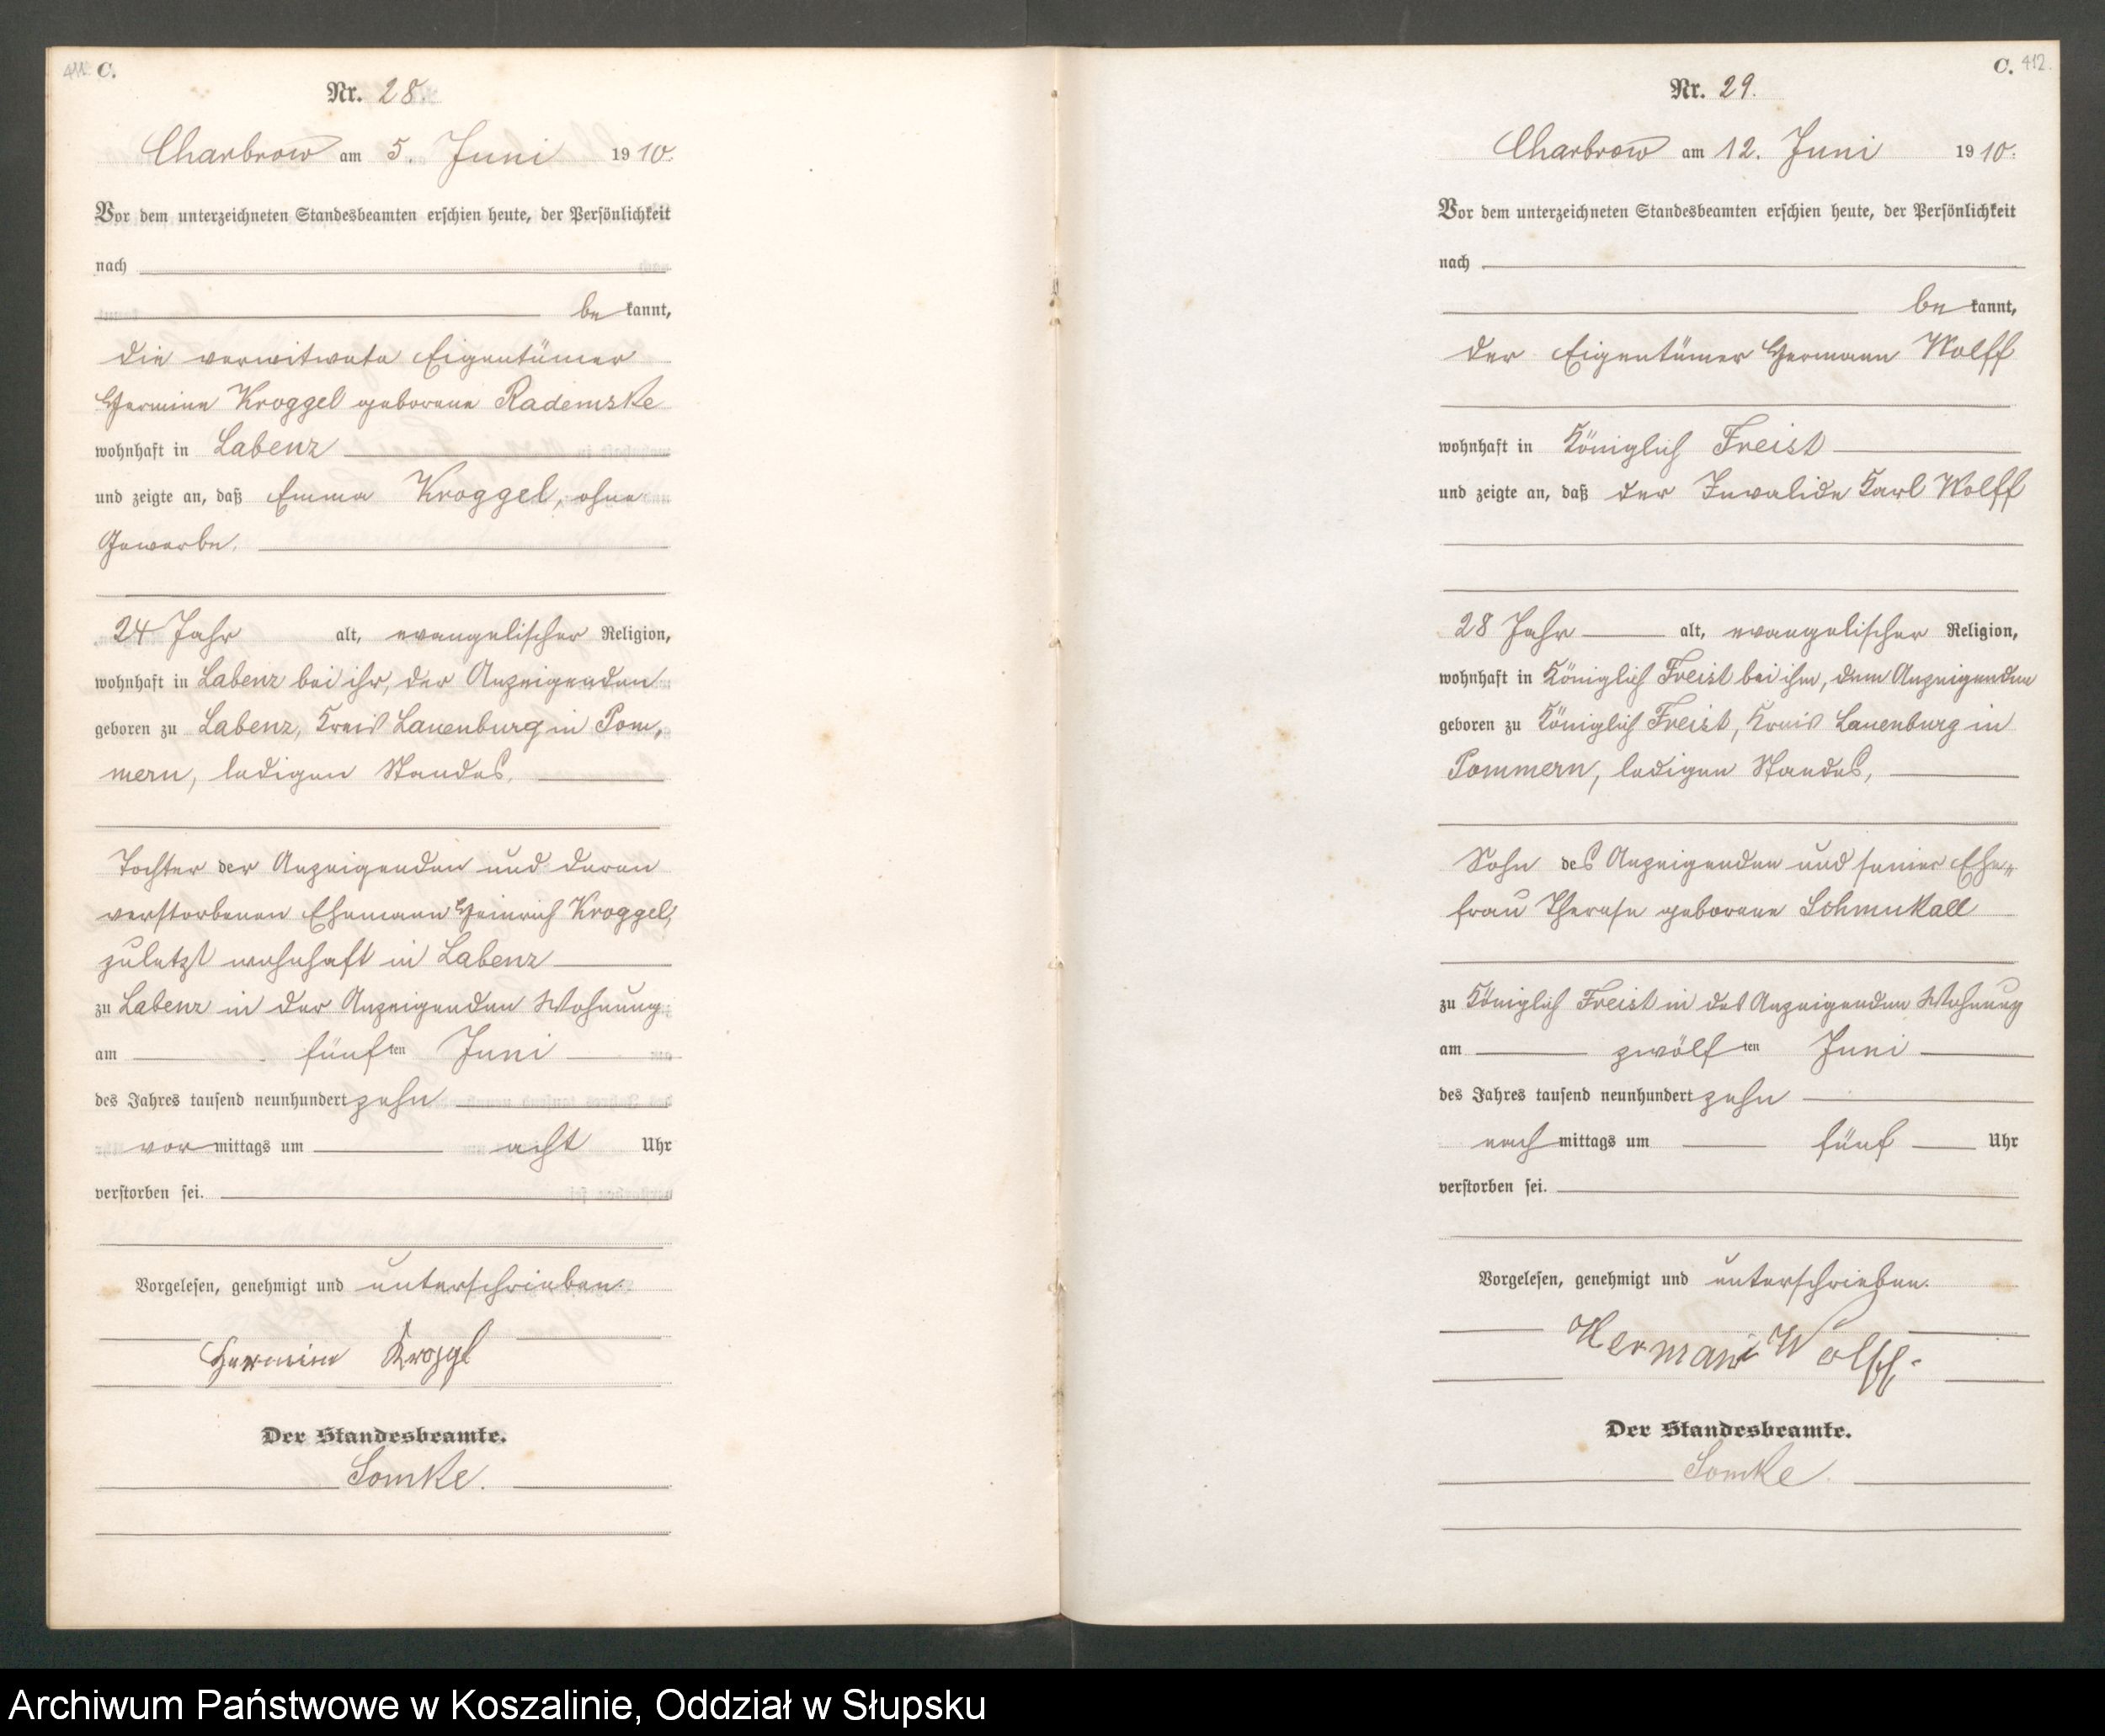 411. C.
Nr. 28.
Charbrow am 5. Juni 1910.
Vor dem unterzeichneten Standesbeamten erschien heute, der Persönlichkeit
nach
be kannt,
die verwitwete Eigentümer
Hermine Kroggel geborene Rademske
wohnhaft in Labenz
und zeigte an, daß Emma Kroggel, ohne
Gewerbe,
24 Jahr alt, evangelischer Religion,
wohnhaft in Labenz bei ihr, der Anzeigenden
geboren zu Labenz, Kreis Lauenburg in Pom,
mern, ledigen Standes,
Tochter der Anzeigenden und deren
verstorbenen Ehemann Heinrich Kroggel,
zuletzt wohnhaft in Labenz
zu Labenz in der Anzeigenden Wohnung
am fünften Juni
des Jahres tausend neunhundert zehn
vormittags um acht Uhr
verstorben sei.
Vorgelesen, genehmigt und unterschrieben.
Hermine Kroggl
Der Standesbeamte.
Somke.
C. 412.
Nr. 29.
Charbrow am 12. Juni 1910.
Vor dem unterzeichneten Standesbeamten erschien heute, der Persönlichkeit
nach
be kannt,
der Eigentümer Hermann Wolff
wohnhaft in Königlich Freist
und zeigte an, daß der Invalide Karl Wolff
28 Jahr alt, evangelischer Religion,
wohnhaft in Königlich Freist bei ihm, dem Anzeigenden
geboren zu Königlich Freist, Kreis Lauenburg in
Pommern, ledigen Standes,
Sohn des Anzeigenden und seiner Ehe„
frau Therese geborene Schmukall
zu Königlich Freist in des Anzeigenden Wohnung
am zwölften Juni
des Jahres tausend neunhundert zehn
nachmittags um fünf Uhr
verstorben sei.
Vorgelesen, genehmigt und unterschrieben.
Hermann Wolff.
Der Standesbeamte.
Somke.
Archiwum Państwowe w Koszalinie, Oddział w Słupsku